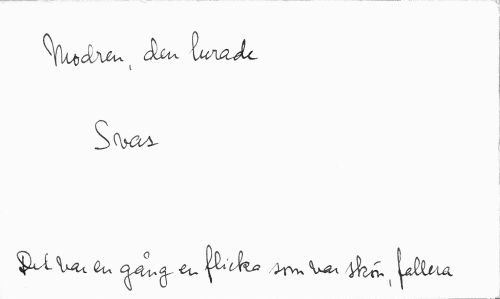 Modren, den lurade
Svas
Det var en gång en flicka som var skön, fallera